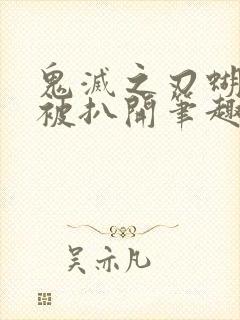 鬼滅之刃蝴
被扒開笔趣
吴亦凡